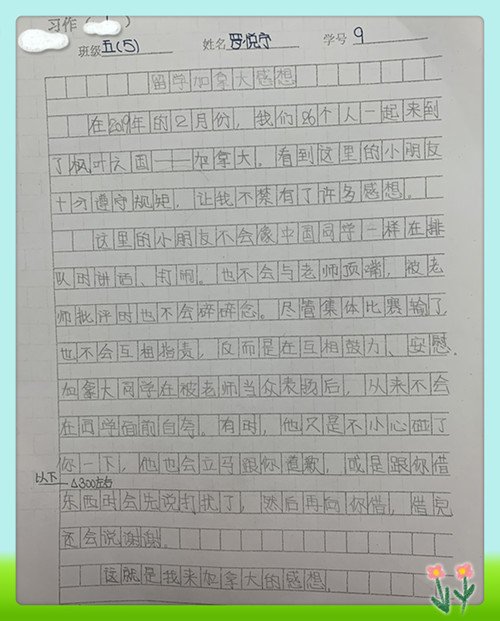 习作（ ）
班级 五(5) 姓名 罗悦宁 学号 9
留学加拿大感想
在2019年的12月份，我们26个人一起来到
了枫叶之国——加拿大。看到这里的小朋友
十分遵守规矩，让我不禁有了许多感想。
这里的小朋友不会像中国同学一样在排
队时讲话、打闹。也不会与老师顶嘴，被老
师批评时也不会碎碎念。尽管集体比赛输了
也不会互相指责，反而是在互相鼓力、安慰.
加拿大同学在被老师当众表扬后，从来不会
在同学面前自夸。有时，他只是不小心碰了
你一下，他也会立马跟你道歉，或是跟你借
东西时会先说打扰了，然后再向你借，借完
以下 △300左右
还会说谢谢.
这就是我来加拿大的感想.